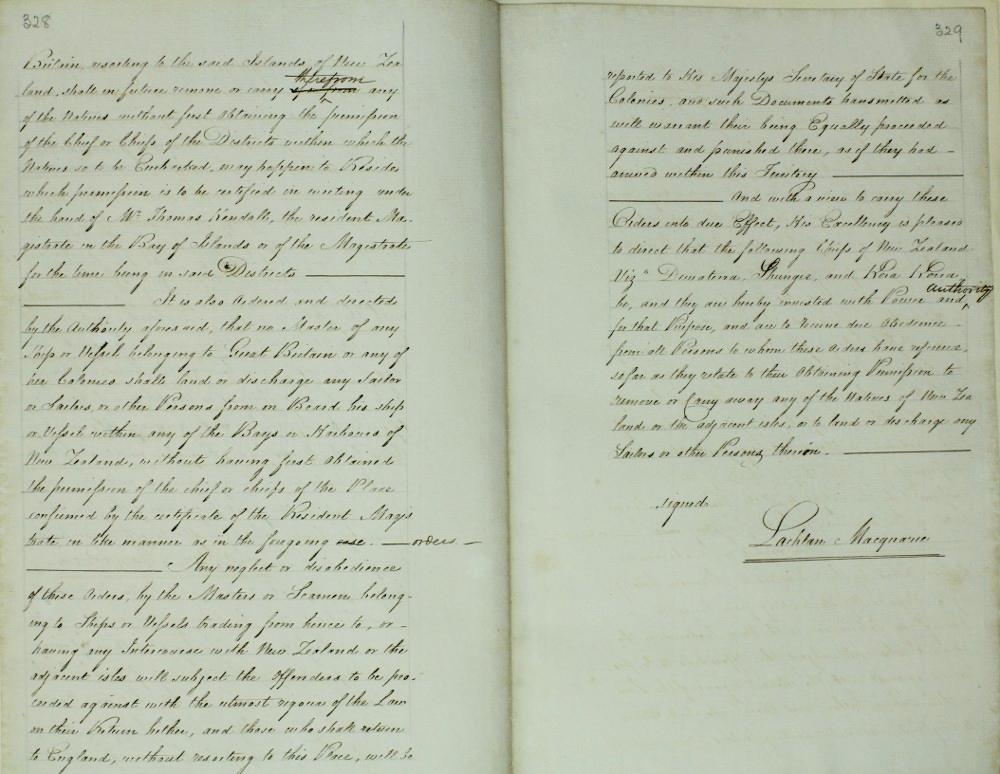 328
Britain, resorting to the said Islands of New Zea
land, shall in future remove or carry therefrom any
of the Natives without first obtaining the permission
of the Chief or Chiefs of the Districts within which the
Natives so to be Embarked, may happen to Reside
which permission is to be certified in writing under
the hand of Mr. Thomas Kendall, the resident Ma-
gistrate in the Bay of Islands or of the Magistrate
for the time being in said Districts
It is also ordered and directed
by the Authority aforesaid, that no Master of any
Ship or Vessel belonging to Great Britain or any of
her Colonies shall land or discharge any Sailor
or Sailors, or other Persons from on Board his ship
or Vessel within any of the Bays or Harbours of
New Zealand, without having first obtained
the permission of the chief or chiefs of the Place
confirmed by the certificate of the Resident Magis
trate in like manner as in the foregoing case. orders
Any neglect or disobedience
of these Orders, by the Masters or Seamen belong-
ing to Ships or Vessels trading from hence to, or-
having any Intercourse with New Zealand or the
adjacent isles will subject the Offenders to be pro-
ceeded against with the utmost rigour of the Law
on their Return hither, and those who shall return
to England, without resorting to this Place, will be
329
reported to His Majestys Secretary of State for the
Colonies, and such Documents transmitted as
will warrant their being Equally proceeded
against and punished there, as if they had -
arrived within this Territory
And with a view to carry these
Orders into due Effect, His Excellency is pleased
to direct that the following Chiefs of New Zealand
Vizt Dewaterra, Shungie, and Kora Kora
be, and they are hereby invested with Power and Authority
for that Purpose, and are to receive due Obedience -
from all Persons to whom these orders have reference,
so far as they relate to their Obtaining Permission to
remove or Carry away any of the Natives of New Zea
land or the adjacent isles, or to land or discharge any
Sailors or other Persons thereon.
signed
Lachlan Macquarie